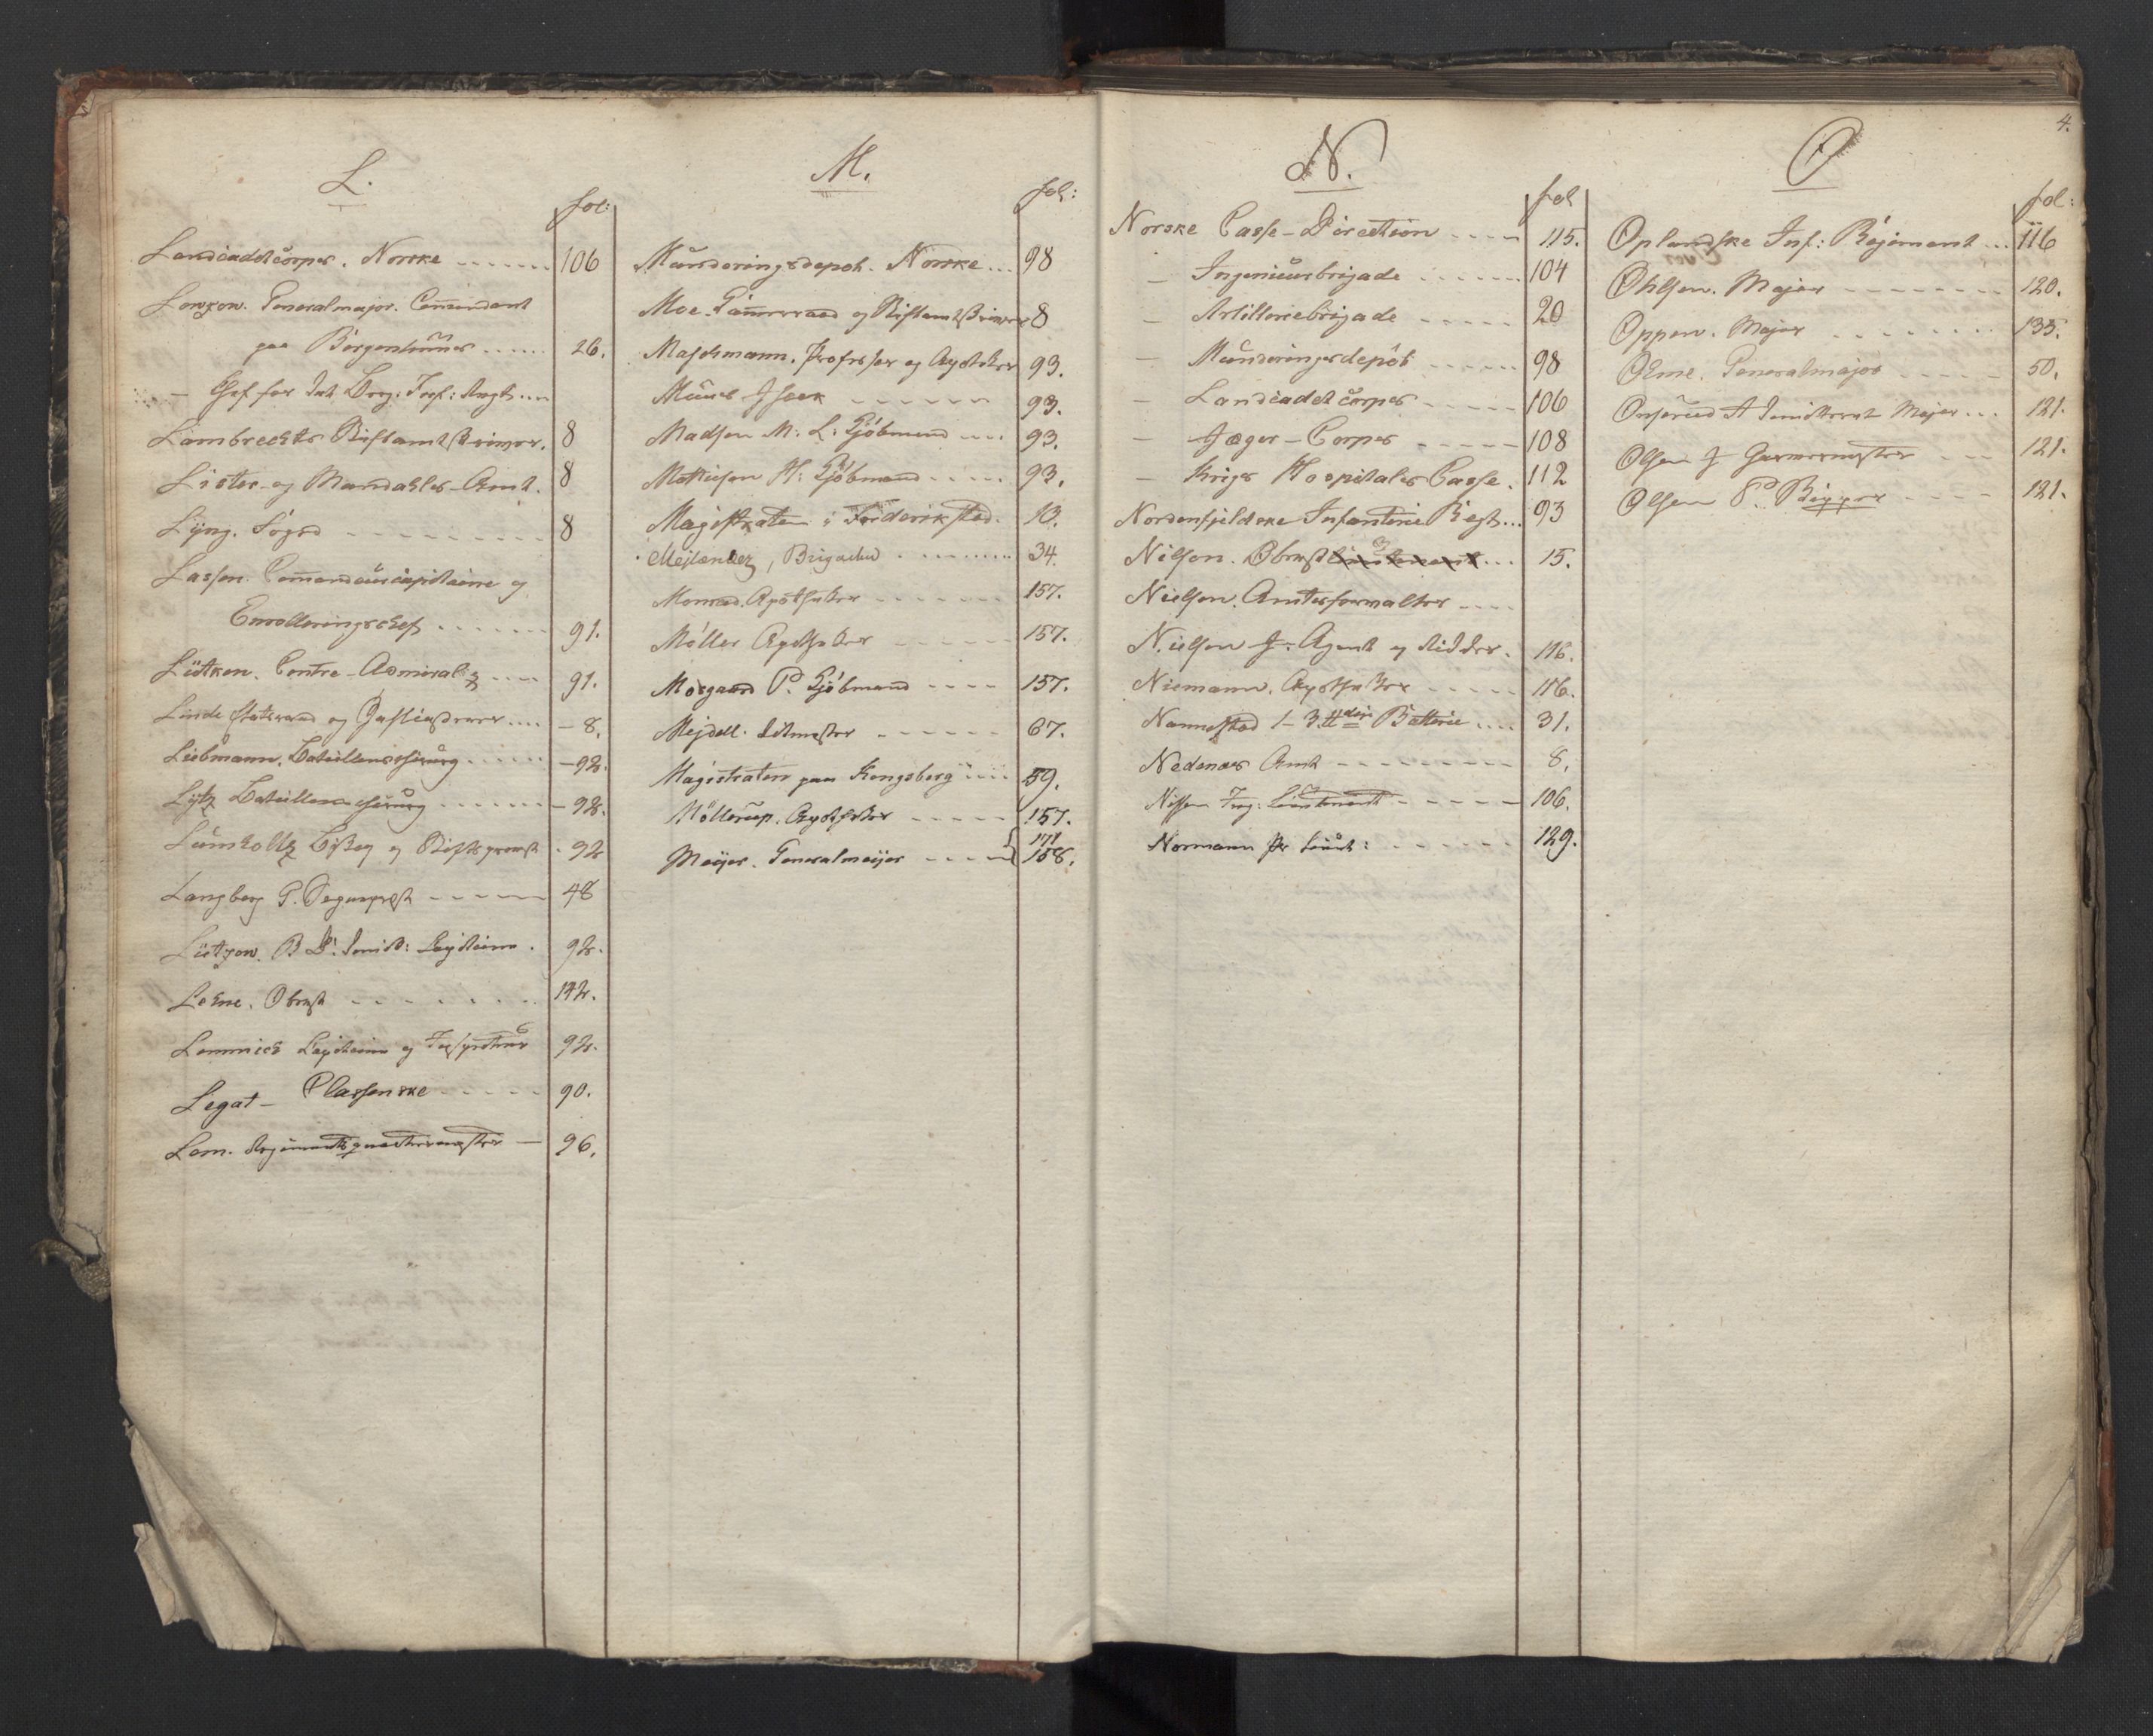 L.
fol:
Landcadetcorpset. Norske ------- 106
Lowzow. Generalmajor. Commendant
paa Bergenhuus ------ 26.
Lambrechts Stiftamtskriver. 8
Lister- og Mandahls-Amt. 8
Lyng. Foged --------- 8
Lassen. Commandeurcapitaine og
Enrolleringschef ------- 91.
Lütken. Contre-Admiral ---- 91.
Linde Etatsraad og ---- 8.
Liebmann. Batailonschirurg ------ 92.
Lytz Bataillonschirurg ------- 92.
Lumholtz Biskop og Stiftsprovst - 92
Langberg P. Sognepræst ------ 48
Lützow. B D: Capitaine . 92.
Lehne. Oberst -------- 142.
Lemmich Capitaine og Inspecteur 92.
Legat- Classenske ------ 90.
Lem. Regimentsquarteermester - 96.
M.
fol:
Munderingsdepot. Norske ... 98
Moe. Cammerraad og Stiftamtskriver 8
Maschmann. Professor og Apotheker 93.
Muus Isaak ------- 93.
Madsen M: L: Kjöbmand ---- 93.
Mathiesen H: Kjöbmand ----- 93.
Magistraten i Friderikstad. 13.
Mejlænder, Brigadeed . -------- 34.
Monrad. Apotheker ------- 157.
Möller Apotheker ------- 157.
Morgaard P. Kjöbmand ---- 157.
Mejdell. Ritmester ------ 67.
Magistraten paa Kongsberg ---- 59.
Möllerup. Apotheker ----- 157.
171
Meijer. Generalmajor ---- 158.
N.
fol
Norske Casse-Direction ---- 115.
- Ingenieurbrigade ------- 104
- Artilleriebrigade ----- 20
- Munderingsdepôt ------ 98
- Landcadetcorps ----- 106
- Jæger-Corps ------ 108
- Krigs Hospitals Casse. 112
Nordenfjeldske Infanterie Regt ... 93
Nilsen. Oberstlieutenant ... 15.
Nielsen. Amtsforvalter ----
Nielsen J. Agent og Ridder. 116.
Niemann. Apotheker ----- 116.
Nannestad 1- 3 Batterie .... 31.
Nedenæs Amt --------- 8.
Nissen Ing: Lieutenant ----- 106.
Normann Pr Lieut: ------ 129.
O
4.
fol:
Oplandske Inf: Regiment ... 116
Ohlsen. Major -------- 120.
Oppen. Major -------- 135.
Ohme. Generalmajor ----- 50.
Major ... 121.
Olsen J Garvermester --- 121.
Olsen P. ---- 121.